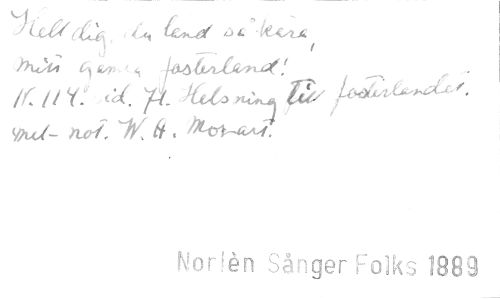 Hell dig, du land så kära,
mitt gamla fosterland!
N. 114. sid. 71. Helsning till fosterlandet.
mel-not. W. A. Mozart.
Norlèn Sånger Folks 1889